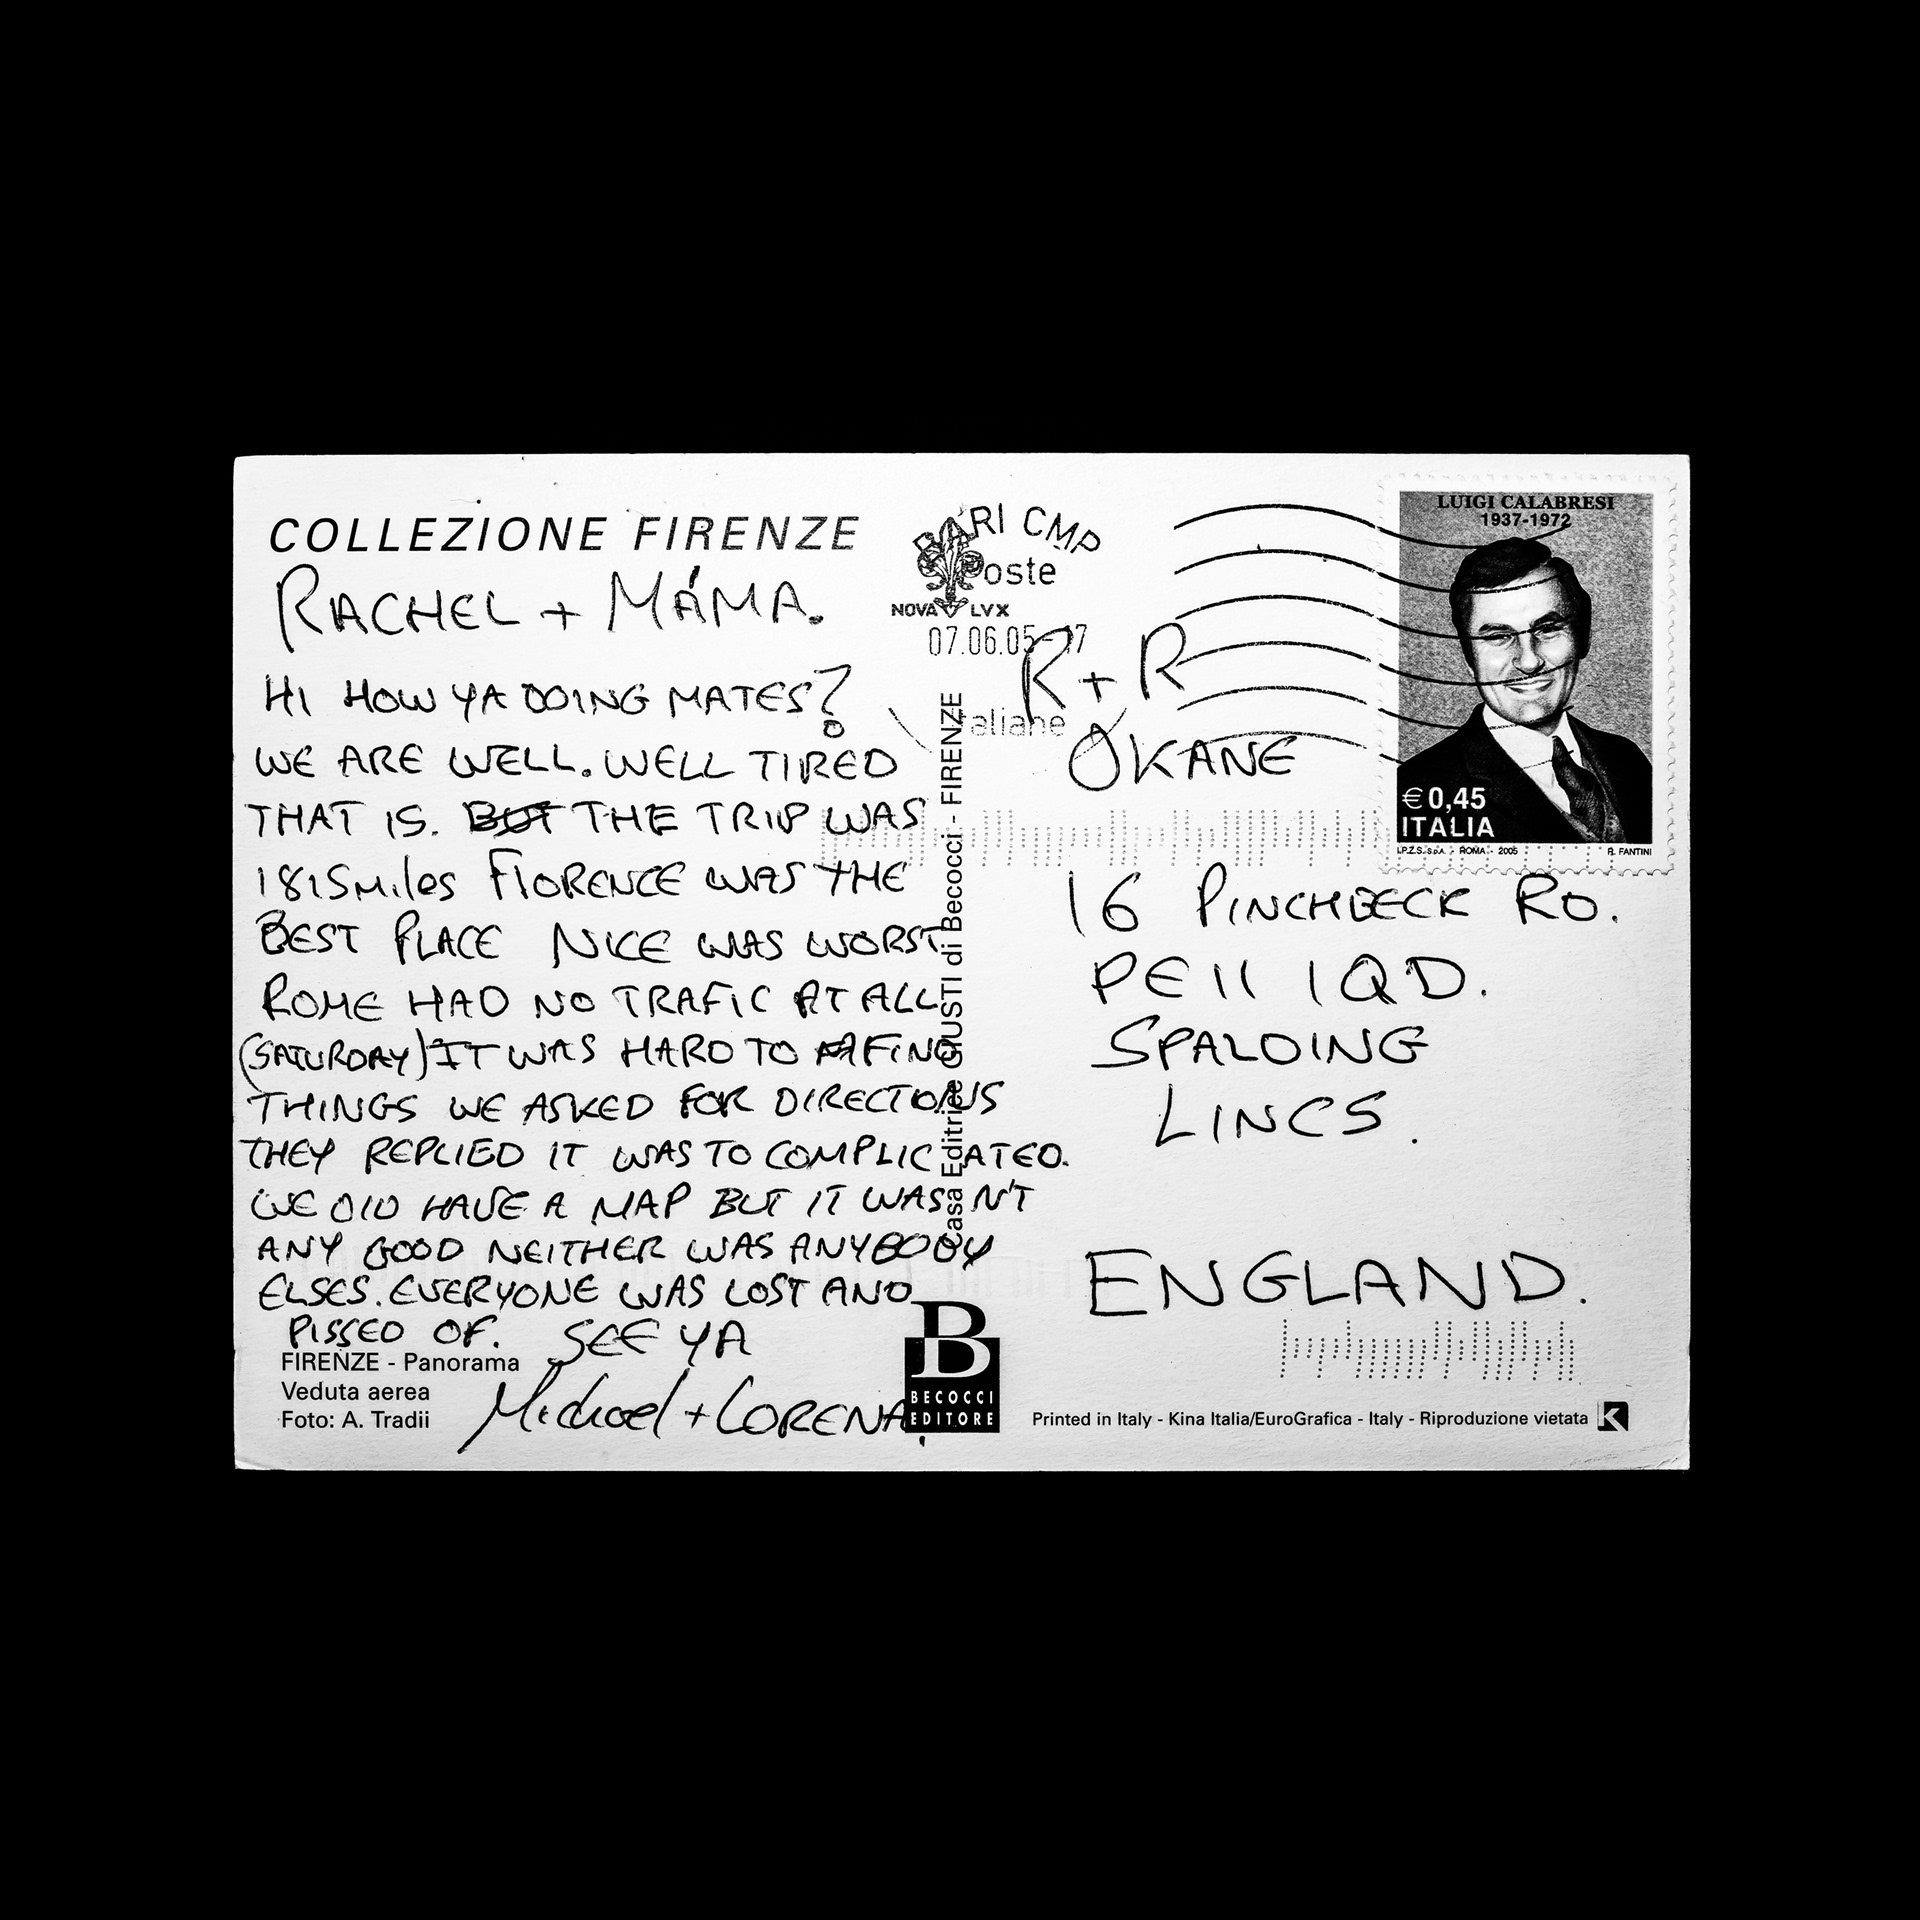 COLLEZIONE FIRENZE
RACHEL + MÁMA.
HI HOW YA DOING MATES?
WE ARE WELL. WELL TIRED
THAT IS. BUT THE TRIP WAS
1815 miles FlORENCE WAS THE
BEST PLACE NICE WAS WORST
ROME HAD NO TRAFIC AT ALL
(SATURDAY) IT WAS HARD TO FIND
THINGS WE ASKED FOR DIRECTIONS
THEY REPLIED IT WAS TO COMPLICATED.
WE DID HAVE A MAP BUT IT WASN'T
ANY GOOD NEITHER WAS ANYBODY
ELSES. EVERYONE WAS LOST AND
PISSED OF. SEE YA
Michael + LORENA.
FIRENZE - Panorama
Veduta aerea
Foto: A. Tradii
Casa Editrice GIUSTI di Becocci - FIRENZE
B
BECOCCI
EDITORE
BARI CMP
Poste
NOVA LVX
07.06.05-17
Italiane
R + R
O'KANE
16 PINCHBECK RD.
PE11 1QD.
SPALDING
LINCS.
ENGLAND.
LUIGI CALABRESI
1937-1972
€0,45
ITALIA
I.P.Z.S. S.p.A. - ROMA - 2005 R. FANTINI
Printed in Italy - Kina Italia/EuroGrafica - Italy - Riproduzione vietata K